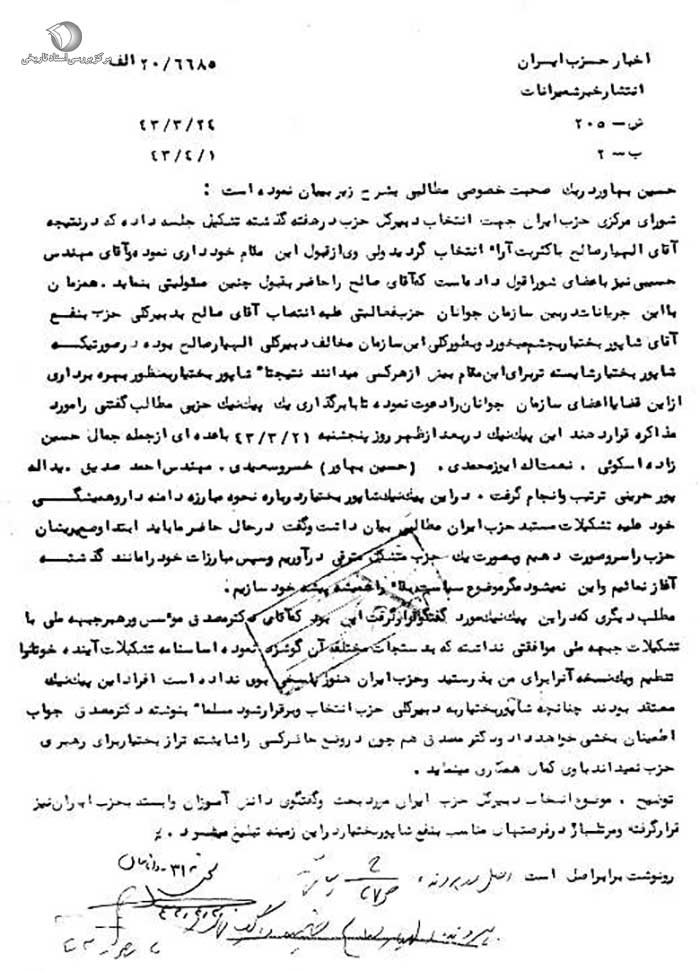 مرکز بررسی اسناد تاریخی
اخبار حزب ایران
۲۰/۶۶۸۵ الف
انتشار خبر شمیرانات
ش — ۲۰۵
۴۳/۳/۲۴
ب — ۲
۴۳/۴/۱
حسین بهاور در یک صحبت خصوصی مطالبی بشرح زیر بیان نموده است :
شورای مرکزی حزب ایران جهت انتخاب دبیرکل حزب در هفته گذشته تشکیل جلسه داده که در نتیجه
آقای الهیار صالح باکثریت آراء انتخاب گردید ولی وی از قبول این مقام خودداری نموده و آقای مهندس
حسیبی نیز باعضای شورا قول داده است که آقای صالح را حاضر بقبول چنین مسئولیتی بنماید . همزمان
با این جریانات در بین سازمان جوانان حزب فعالیتی علیه انتصاب آقای صالح بدبیرکلی حزب بنفع
آقای شاپور بختیار بچشم میخورد و بطور کلی این سازمان مخالف دبیرکلی الهیار صالح بوده در صورتیکه
شاپور بختیار شایسته تر برای این مقام بیش از هر کسی میدانند نتیجتاً شاپور بختیار بمنظور بهره برداری
از این قضایا اعضای سازمان جوانان را دعوت نموده تا با برگذاری یک پیک نیک حزبی مطالب گفتنی را مورد
مذاکره قرار دهند این پیک نیک در بعد از ظهر روز پنجشنبه ۴۳/۳/۲۱ با عده ای از جمله جمال حسین
زاده اسکوئی . نعمت اله ابوزمحمدی . (حسین بهاور) خسرو سعیدی . مهندس احمد صدیق . یداله
پور حرینی ترتیب و انجام گرفت . در این پیک نیک شاپور بختیار درباره نحوه مبارزه دامنه دار و همیشگی
خود علیه تشکیلات مستبد حزب ایران مطالبی بیان داشت و گفت در حال حاضر ما باید ابتدا وضع پریشان
حزب را سر و صورت دهیم و بصورت یک حزب متشکل مترقی درآوریم و سپس مبارزات خود را مانند گذشته
آغاز نمائیم و این نمیشود مگر موضوع سیاست بقاء را همیشه پیشه خود سازیم .
مطلب دیگری که در این پیک نیک مورد گفتگو قرار گرفت این بود که آقای دکتر مصدق مؤسس و رهبر جبهه ملی با
تشکیلات جبهه ملی موافقتی نداشته که بدستجات مختلفه آن گوشزد نموده اساسنامه تشکیلات آینده خود را
تنظیم و یک نسخه آنرا برای من بفرستید و حزب ایران هنوز پاسخی بوی نداده است افراد این پیک نیک
معتقد بودند چنانچه شاپور بختیار به دبیرکلی حزب انتخاب و برقرار شود مسلماً بنوشته دکتر مصدق جواب
اطمینان بخشی خواهد داد و دکتر مصدق هم چون در وضع حاضر کسی را شایسته تر از بختیار برای رهبری
حزب نمیداند با وی کمال همکاری مینماید .
توضیح . موضوع انتخاب دبیرکل حزب ایران مورد بحث و گفتگوی دانش آموزان وابسته بحزب ایران نیز
قرار گرفته و مرتباً در فرصتهای مناسب بنفع شاپور بختیار در این زمینه تبلیغ میشود .
رونوشت برابر اصل است
اصل در پرونده